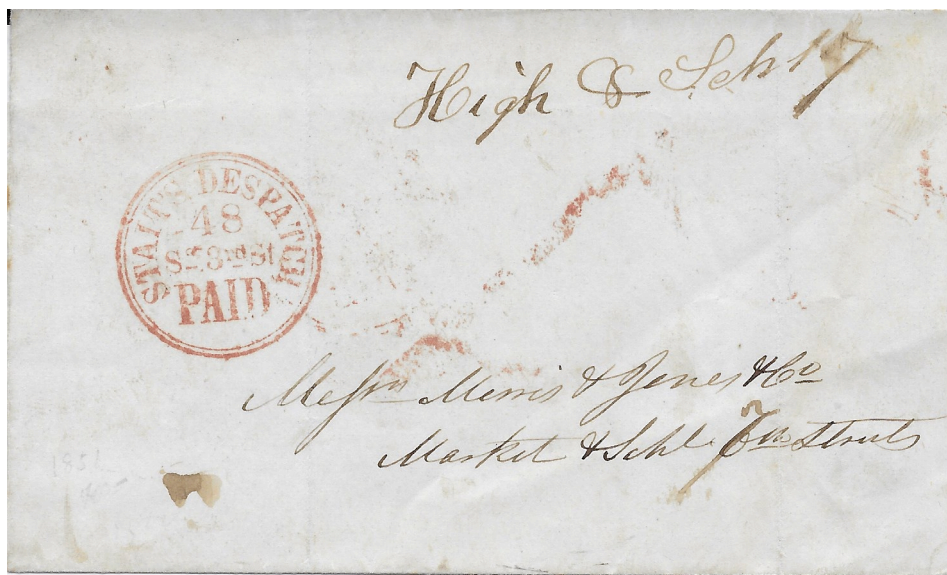 High & Sch 17
STAIT'S DESPATCH
48
So 3rd St
PAID
Messrs Morris & Jones & Co
Market & Schl 7th Streets